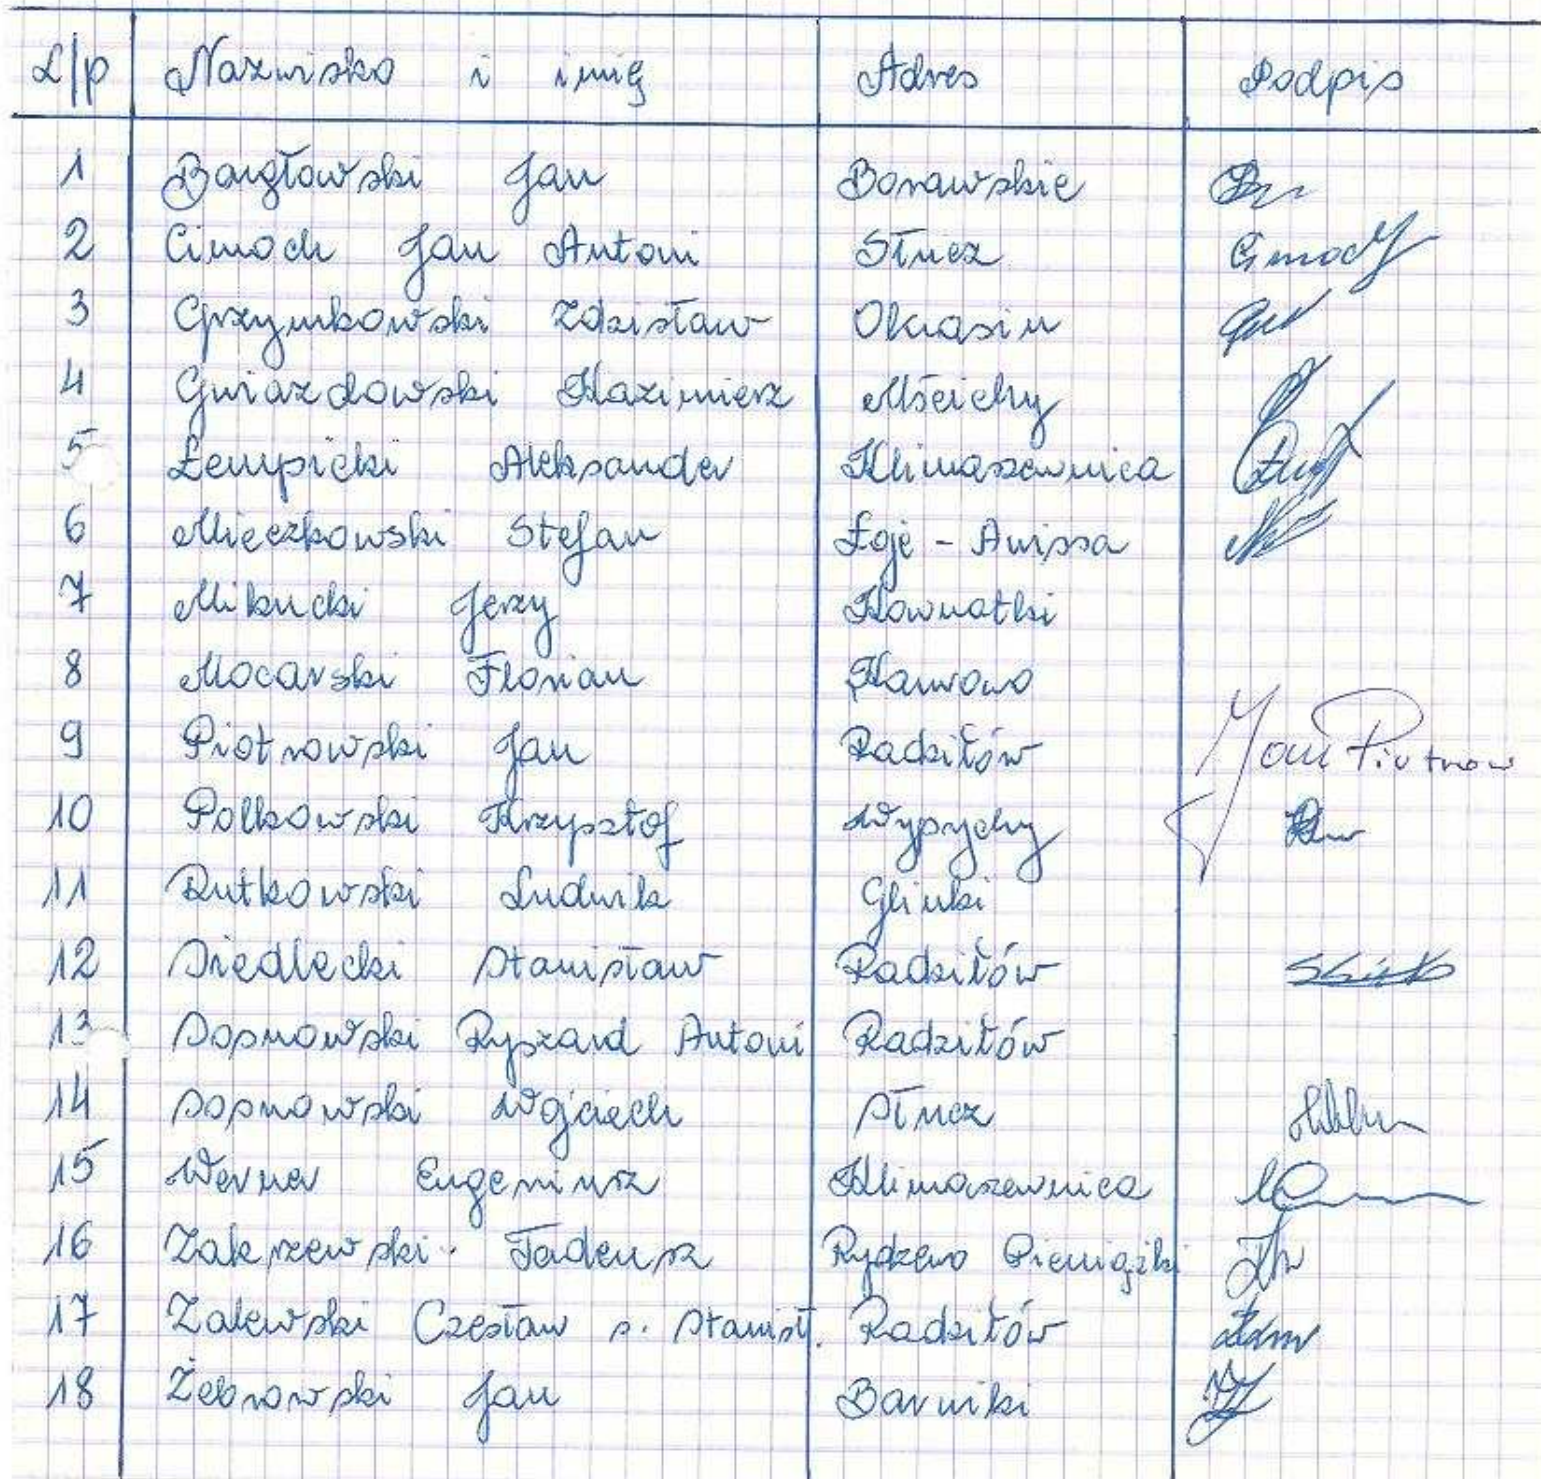 L/p Nazwisko i imię Adres Podpis
1 Bargłowski Jan Borawskie
2 Cimoch Jan Antoni Słucz Cimoch
3 Grzymkowski Zdzisław Okrasin
4 Gwiazdowski Kazimierz Mścichy
5 Łempicki Aleksander Klimaszewnica
6 Mieczkowski Stefan Łoje - Awissa
7 Mikucki Jerzy Kownatki
8 Mocarski Florian Karwowo
9 Piotrowski Jan Radziłów Jan Piotrow
10 Polkowski Krzysztof Wypychy
11 Rutkowski Ludwik Glinki
12 Siedlecki Stanisław Radziłów
13 Sosnowski Ryszard Antoni Radziłów
14 Sosnowski Wojciech Słucz
15 Werner Eugeniusz Klimaszewnica
16 Zakrzewski Tadeusz Rydzewo Pieniążki
17 Zalewski Czesław s. Stanisł. Radziłów
18 Żebrowski Jan Barwiki